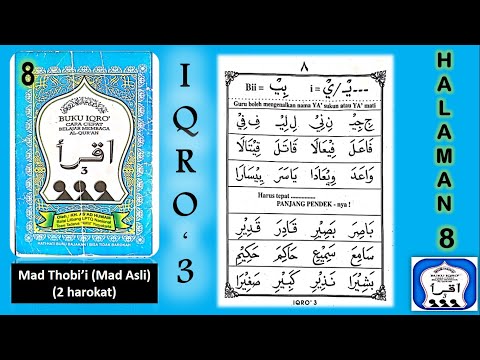 8
BUKU IQRO'
CARA CEPAT
BELAJAR MEMBACA
AL-QUR'AN
اقرأ
3
Mad Thobi'i (Mad Asli)
(2 harokat)
IQRO' 3
٨
Bii = بِيْ i = ـيْ/يْ...
Guru boleh mengenalkan nama YA' sukun atau YA' mati
جِ جِيْ نِ نِيْ لِ لِيْ فِ فِيْ
فَاعَلَ فِيْعَالًا قَاتَلَ قِيْتَالًا
وَاعَدَ وِيْعَادًا يَاسَرَ يِيْسَارًا
Harus tepat
PANJANG PENDEK - nya !
بَاصِرَ بَصِيْرٌ قَادِرَ قَدِيْرٌ
سَامِعَ سَمِيْعٌ حَاكِمَ حَكِيْمٌ
بَشِيْرًا نَذِيْرٌ كَبِيْرٌ صَغِيْرًا
IQRO' 3
HALAMAN 8
BUKU IQRO'
اقرأ
3